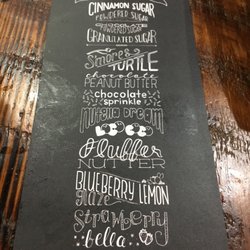 CINNAMON SUGAR
POWDERED SUGAR
CHOCOLATE
POWDERED SUGAR
GRANULATED SUGAR
S'mores
TURTLE
chocolate
PEANUT BUTTER
chocolate
sprinkle
DREAM
LOCO
fluffer
NUTTER
BLUEBERRY LEMON
glaze
strawberry
bella